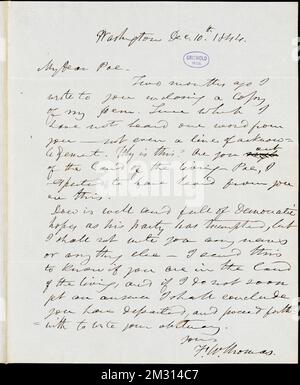 Washington Dec 10th, 1844.
GRISWOLD
MSS.
My Dear Poe,
Two months ago I
wrote to you inclosing a copy
of my poem. Since which I
have not heard one word from
you — not even a line of acknow-
ledgment. Why is this? Are you out
of the land of the living Poe, I
expected to have heard from you
ere this.
Dow is well and full of Democratic
hopes as his party has triumphed, but
I shall not write you any news
or any thing else — I send this
to know if you are in the land
of the living, and if I do not soon
get an answer I shall conclude
you have departed, and proceed forth-
with to write your obituary.
Yours
F. W. Thomas.
alamy
Image ID: 2M314C7
www.alamy.com